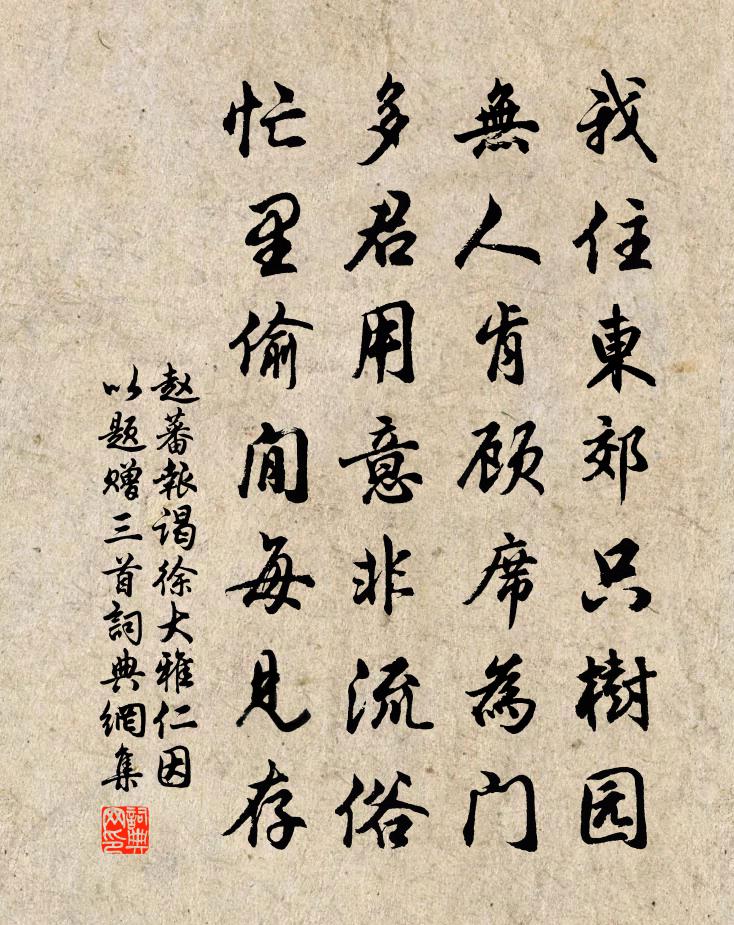 我住東郊只樹园
無人肯顾席為门
多君用意非流俗
忙里偷閒每見存
赵蕃報谒徐大雅仁因
以题赠三首詞典網集
詞典网印